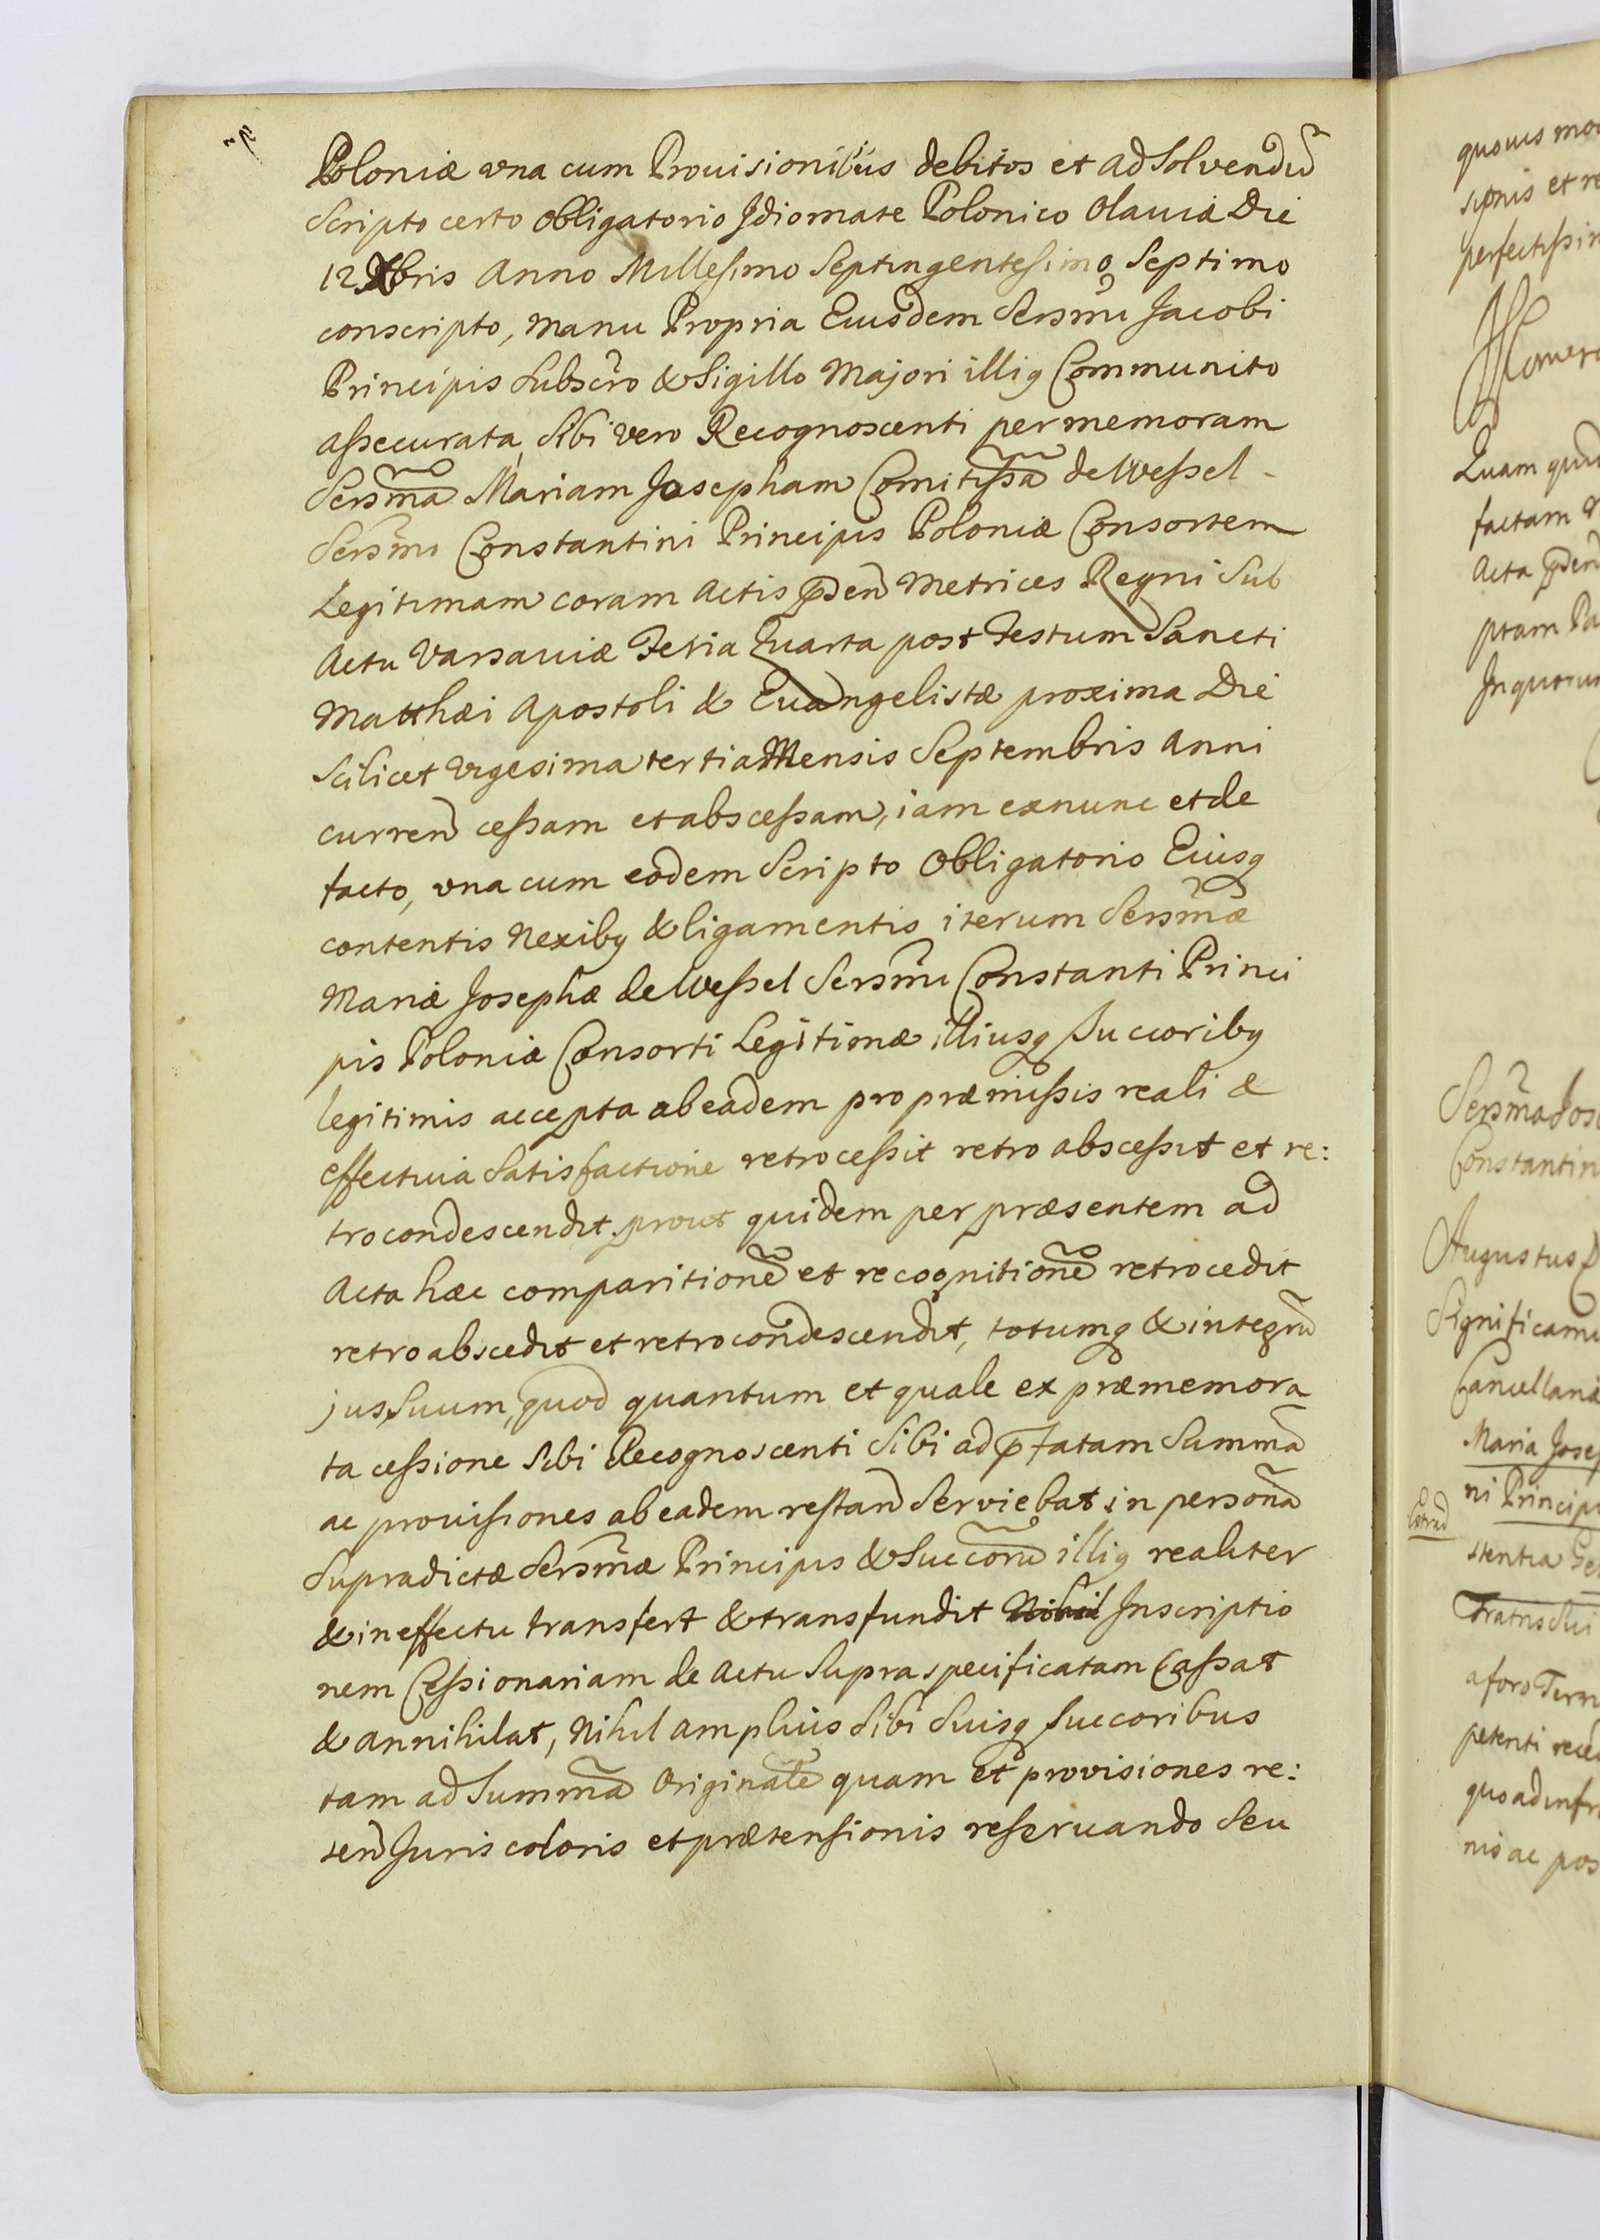 Poloniæ vna cum Prouisionibus debitos et ad Solvendũ
Scripto certo Obligatorio Jdiomate Polonico Olauiæ Die
12 Xbris Anno Millesimo Septingentesimo Septimo
conscripto, manu Propria Eiusdem Sersmi Jacobi
Principis Subscro & Sigillo Majori illiq Communito
assecurata, Sibi vero Recognoscenti per memoram
Sersmã Mariam Josepham Comitissã de Wessel -
Sersmi Constantini Principis Poloniæ Consortem
Legitimam coram Actis pden Metrices Regni Sub
Actu Varsauiæ Feria Quarta post Festum Sancti
Matthæi Apostoli & Euangelistæ proxima Die
Scilicet Vigesima tertia Mensis Septembris Anni
curren cessam et abscessam, iam exnunc et de
facto, vna cum eodem Scripto Obligatorio Eiusq
contentis Nexibq & ligamentis iterum Sersmæ
Mariæ Josephæ de Wessel Sersmi Constanti Princi
pis Poloniæ Consorti Legitimæ illiusq Succoribq
legitimis accepta ab eadem pro præmissis reali &
effectiua Satisfactione retrocessit retro abscessit et re:
trocondescendit, prout quidem per præsentem ad
Acta hæc comparitionẽ et recognitionẽ retrocedit
retroabscedit et retrocondescendit, totumq & integrũ
jus Suum, quod quantum et quale ex præmemora
ta cessione Sibi Recognoscenti Sibi ad pfatam Summã
ac prouisiones ab eadem restan Serviebat in personã
Supradictæ Sersmæ Principis & Succorũ illiq realiter
& in effectu transfert & transfundit Nihil Inscriptio
nem Cessionariam de Actu Supra specificatam Cassat
& annihilat, Nihil amplius Sibi Suisq Succoribus
tam ad Summã Originalẽ quam et provisiones re:
ten Juris coloris et prætensionis reseruando Seu
quouis mo
sionis et re
perfectissim
Quam quid
factam &
Acta pden
ptam Pa
Inquorum
Sersma Jos
Constantin
Augustus
Significamu
Cancellaria
Maria Josep
ni Princip
stentia
Fratris Sui
a foro Terr
petenti rece
quo ad infr
nis ac pos